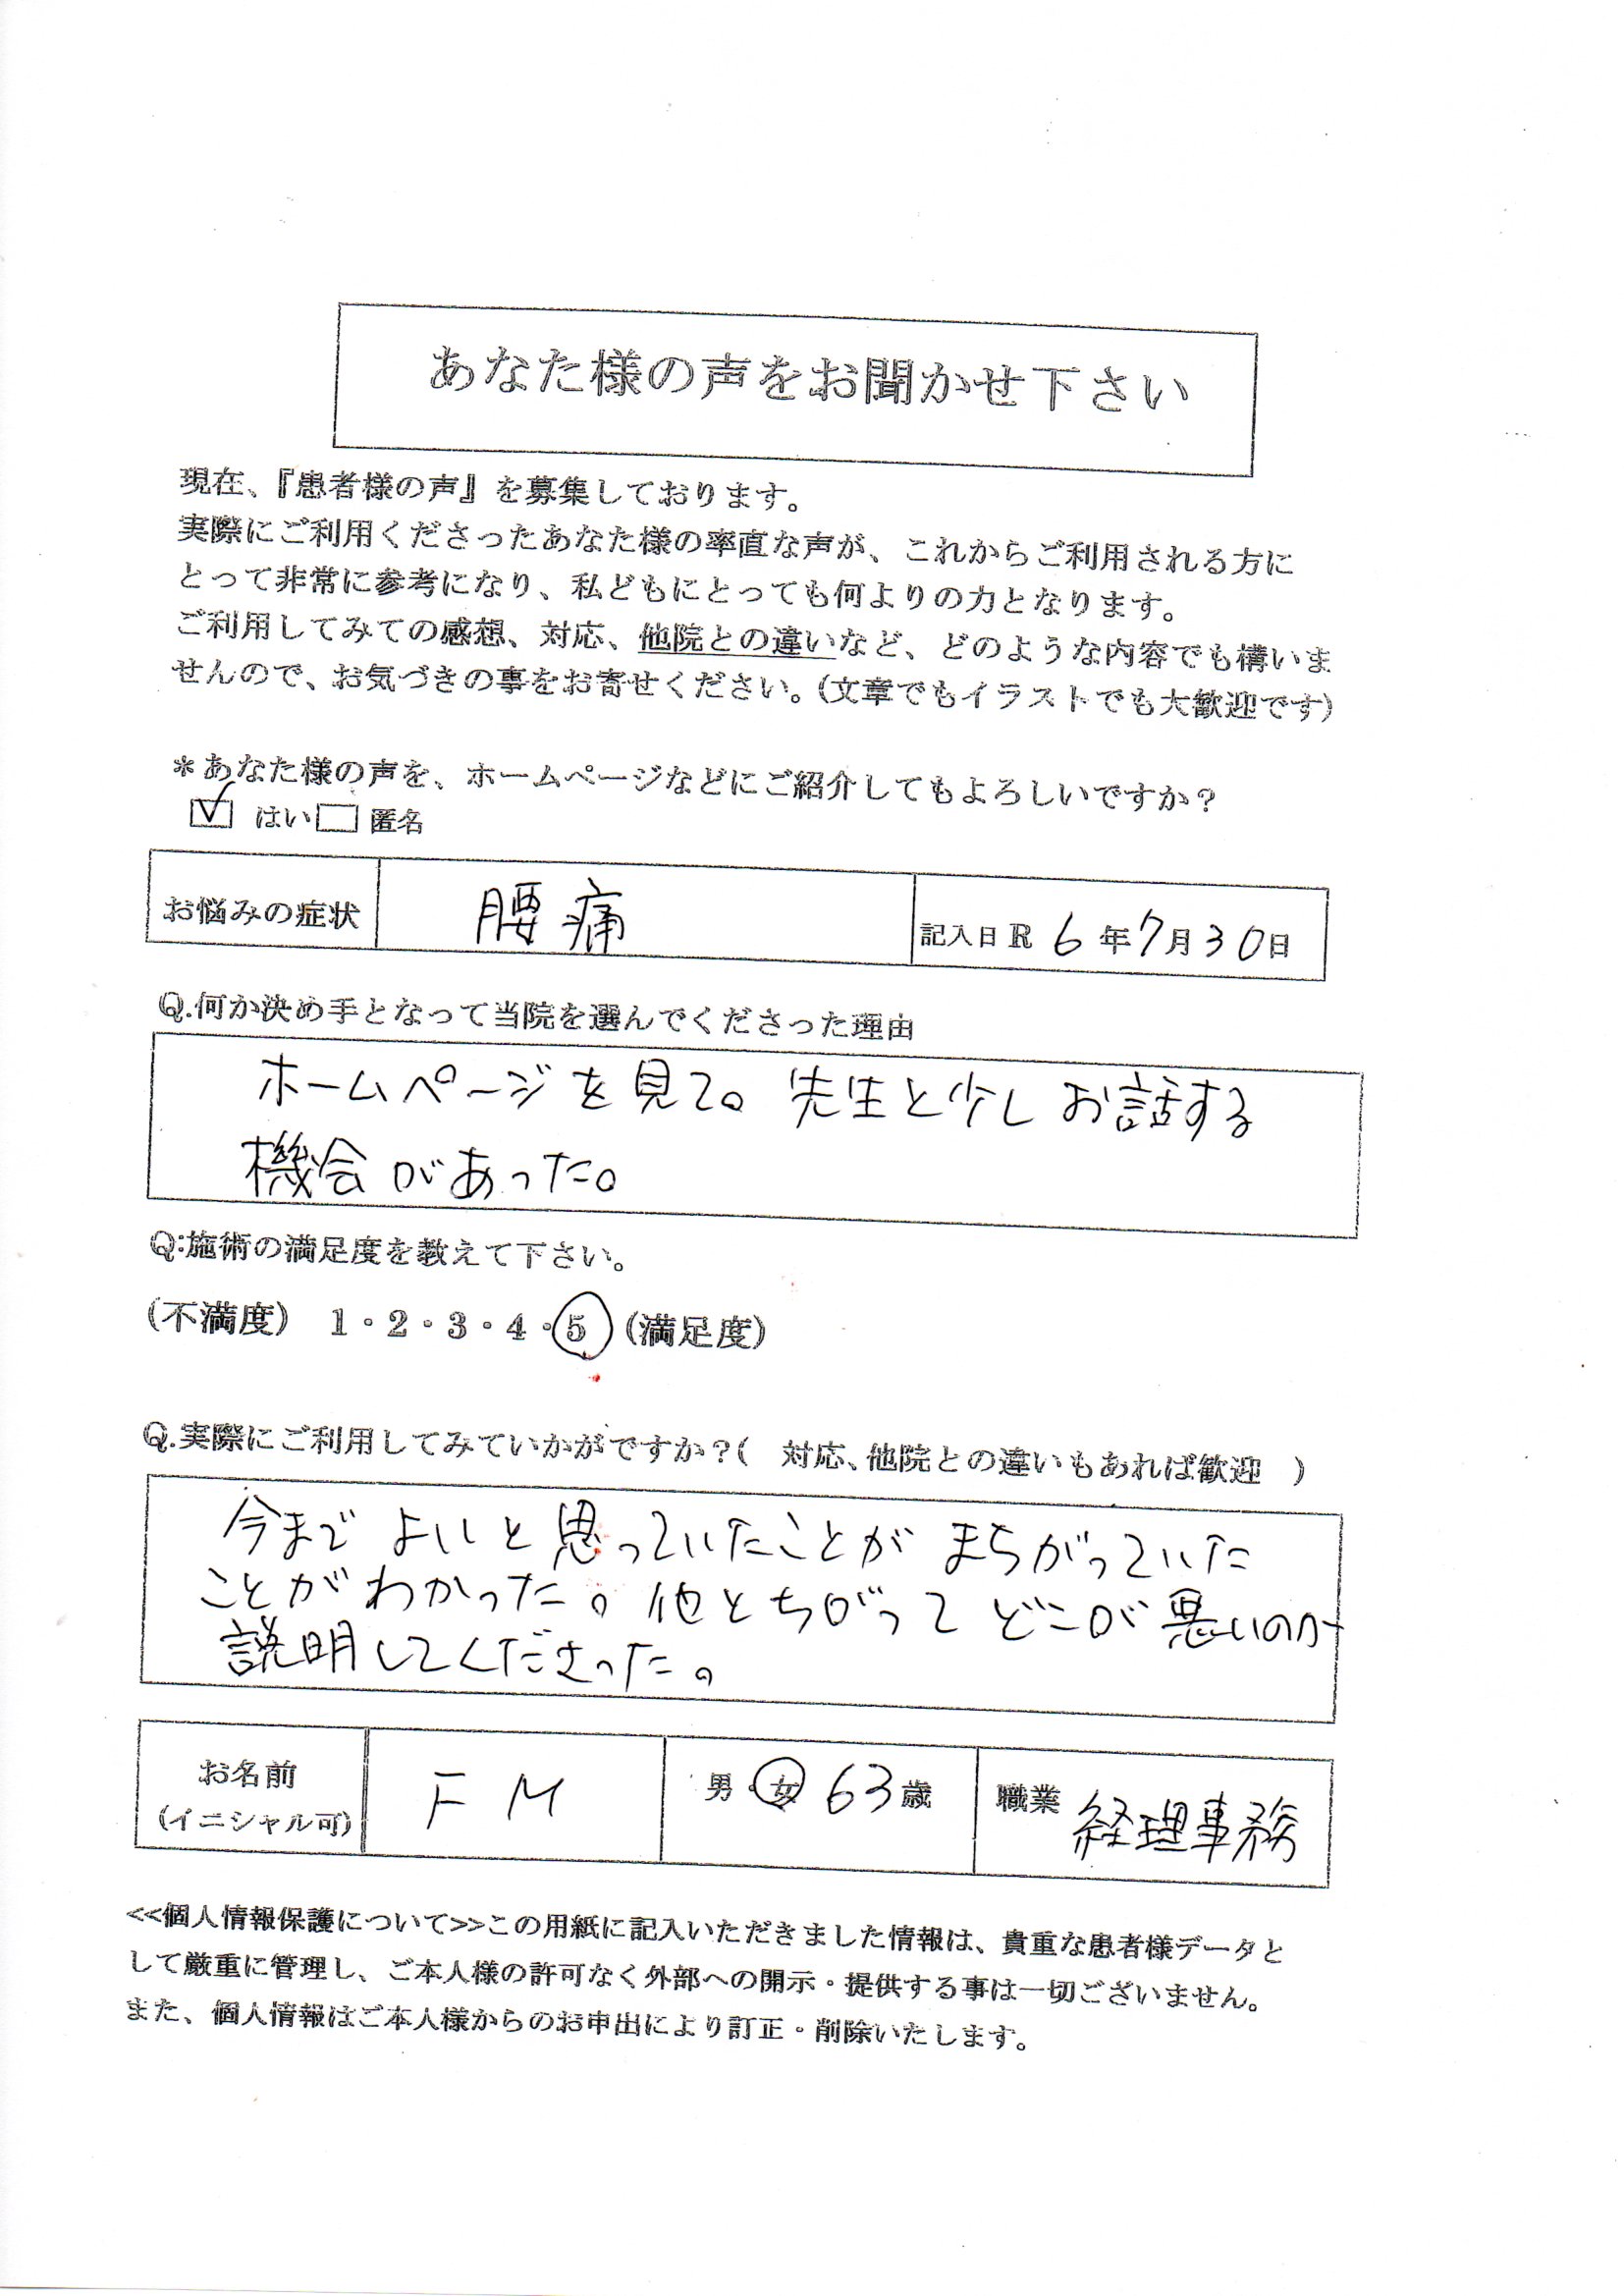 あなた様の声をお聞かせ下さい
現在、『患者様の声』を募集しております。
実際にご利用くださったあなた様の率直な声が、これからご利用される方に
とって非常に参考になり、私どもにとっても何よりの力となります。
ご利用してみての感想、対応、他院との違いなど、どのような内容でも構いま
せんので、お気づきの事をお寄せください。(文章でもイラストでも大歓迎です)
＊あなた様の声を、ホームページなどにご紹介してもよろしいですか？
☑ はい □ 匿名
お悩みの症状 腰痛 記入日 R 6年7月30日
Q.何か決め手となって当院を選んでくださった理由
ホームページを見て。先生と少しお話する
機会があった。
Q:施術の満足度を教えて下さい。
(不満度) 1・2・3・4・5 (満足度)
Q.実際にご利用してみていかがですか？( 対応、他院との違いもあれば歓迎 )
今まで よいと思っていたことが まちがっていた
ことがわかった。他とちがって どこが悪いのか
説明してくださった。
お名前 F M 男・女 63歳 職業 経理事務
(イニシャル可)
<<個人情報保護について>>この用紙に記入いただきました情報は、貴重な患者様データと
して厳重に管理し、ご本人様の許可なく外部への開示・提供する事は一切ございません。
また、個人情報はご本人様からのお申出により訂正・削除いたします。